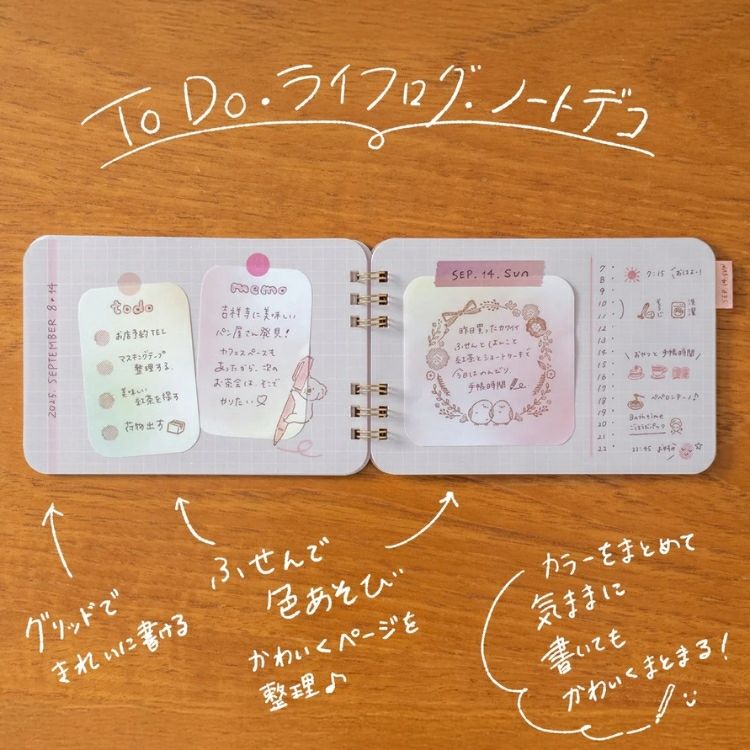 To Do・ライフログ・ノートデコ
2025. SEPTEMBER 8・14
todo
お店予約 TEL
マスキングテープ
整理する
美味しい
紅茶を探す
荷物出す
memo
吉祥寺に美味しい
パン屋さん発見!
カフェスペースも
あったから、次の
お茶会は、そこで
やりたい♡
SEP. 14. Sun
昨日買ったカワイイ
ふせんとはんこと
紅茶とショートケーキで
今日はのんびり
手帳時間
SEP. 14. Sun
7
7:15 おはよー!
8
9
10
洗濯
11
12
13
14
15
\ おやつと手帳時間 /
16
17
18
ペペロンチーノ♪
19
20
Bath time
21
22
グリッドで
きれいに書ける
ふせんで
色あそび
かわいくページを
整理♪
カラーをまとめて
気ままに
書いても
かわいくまとまる!